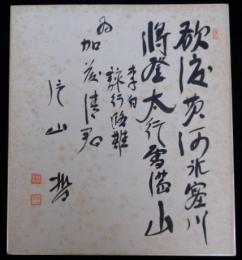 欲渡黄河氷塞川
将登太行雪満山
李白
詠行路難
為加藤清君
片山哲